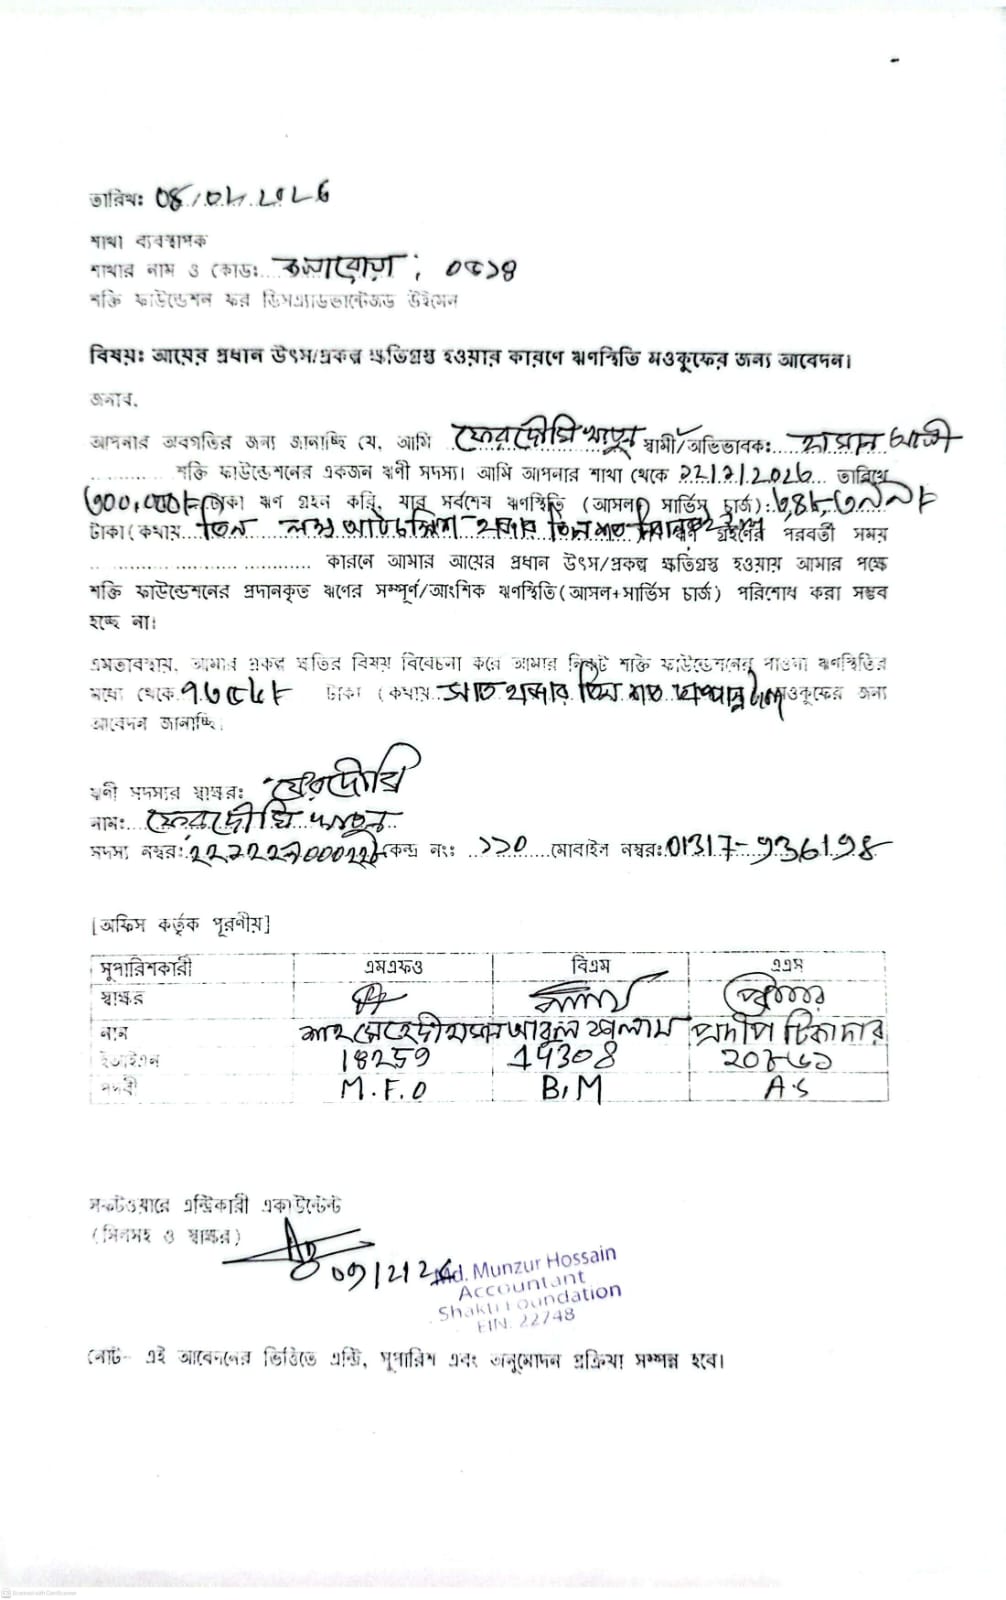 তারিখঃ
শাখা ব্যবস্থাপক
শাখার নাম ও কোডঃ কলারোয়া ; ০৫১৪
শক্তি ফাউন্ডেশন ফর ডিসএ্যাডভান্টেজড উইমেন
বিষয়ঃ আয়ের প্রধান উৎস/প্রকল্প ক্ষতিগ্রস্ত হওয়ার কারণে ঋণস্থিতি মওকুফের জন্য আবেদন।
জনাব,
আপনার অবগতির জন্য জানাচ্ছি যে, আমি ফেরদৌসি খাতুন স্বামী/অভিভাবকঃ হাসান আলী
শক্তি ফাউন্ডেশনের একজন ঋণী সদস্য। আমি আপনার শাখা থেকে তারিখে
৩০০,০০০/- টাকা ঋণ গ্রহন করি, যার সর্বশেষ ঋণস্থিতি (আসল সার্ভিস চার্জ):
টাকা (কথায় তিন লক্ষ আটচল্লিশ হাজার তিন শত ঋণ গ্রহণের পরবর্তী সময়
কারনে আমার আয়ের প্রধান উৎস/প্রকল্প ক্ষতিগ্রস্ত হওয়ায় আমার পক্ষে
শক্তি ফাউন্ডেশনের প্রদানকৃত ঋণের সম্পূর্ণ/আংশিক ঋণস্থিতি (আসল+সার্ভিস চার্জ) পরিশোধ করা সম্ভব
হচ্ছে না।
এমতাবস্থায়, আমার প্রকল্প ক্ষতির বিষয় বিবেচনা করে আমার নিকট শক্তি ফাউন্ডেশনের পাওনা ঋণস্থিতির
মধ্যে থেকে টাকা (কথায় সাত হাজার তিন শত টাকা মওকুফের জন্য
আবেদন জানাচ্ছি।
ঋণী সদস্যর স্বাক্ষরঃ ফেরদৌসি
নাম: ফেরদৌসি খাতুন
সদস্য নম্বরঃ কেন্দ্র নংঃ ১১০ মোবাইল নম্বরঃ 01317-936198
[অফিস কর্তৃক পূরণীয়]
সুপারিশকারী এমএফও বিএম এএস
স্বাক্ষর
নাম শাহ মেহেদী হাসান আবুল কালাম প্রদীপ টিকাদার
ইআইএন 18259 14308 ২০৮৬১
পদবী M.F.O B.M A.S
সফটওয়ারে এন্ট্রিকারী একাউন্টেন্ট
(সিলসহ ও স্বাক্ষর)
Md. Munzur Hossain
Accountant
Shakti Foundation
EIN. 22748
নোট- এই আবেদনের ভিত্তিতে এন্ট্রি, সুপারিশ এবং অনুমোদন প্রক্রিয়া সম্পন্ন হবে।